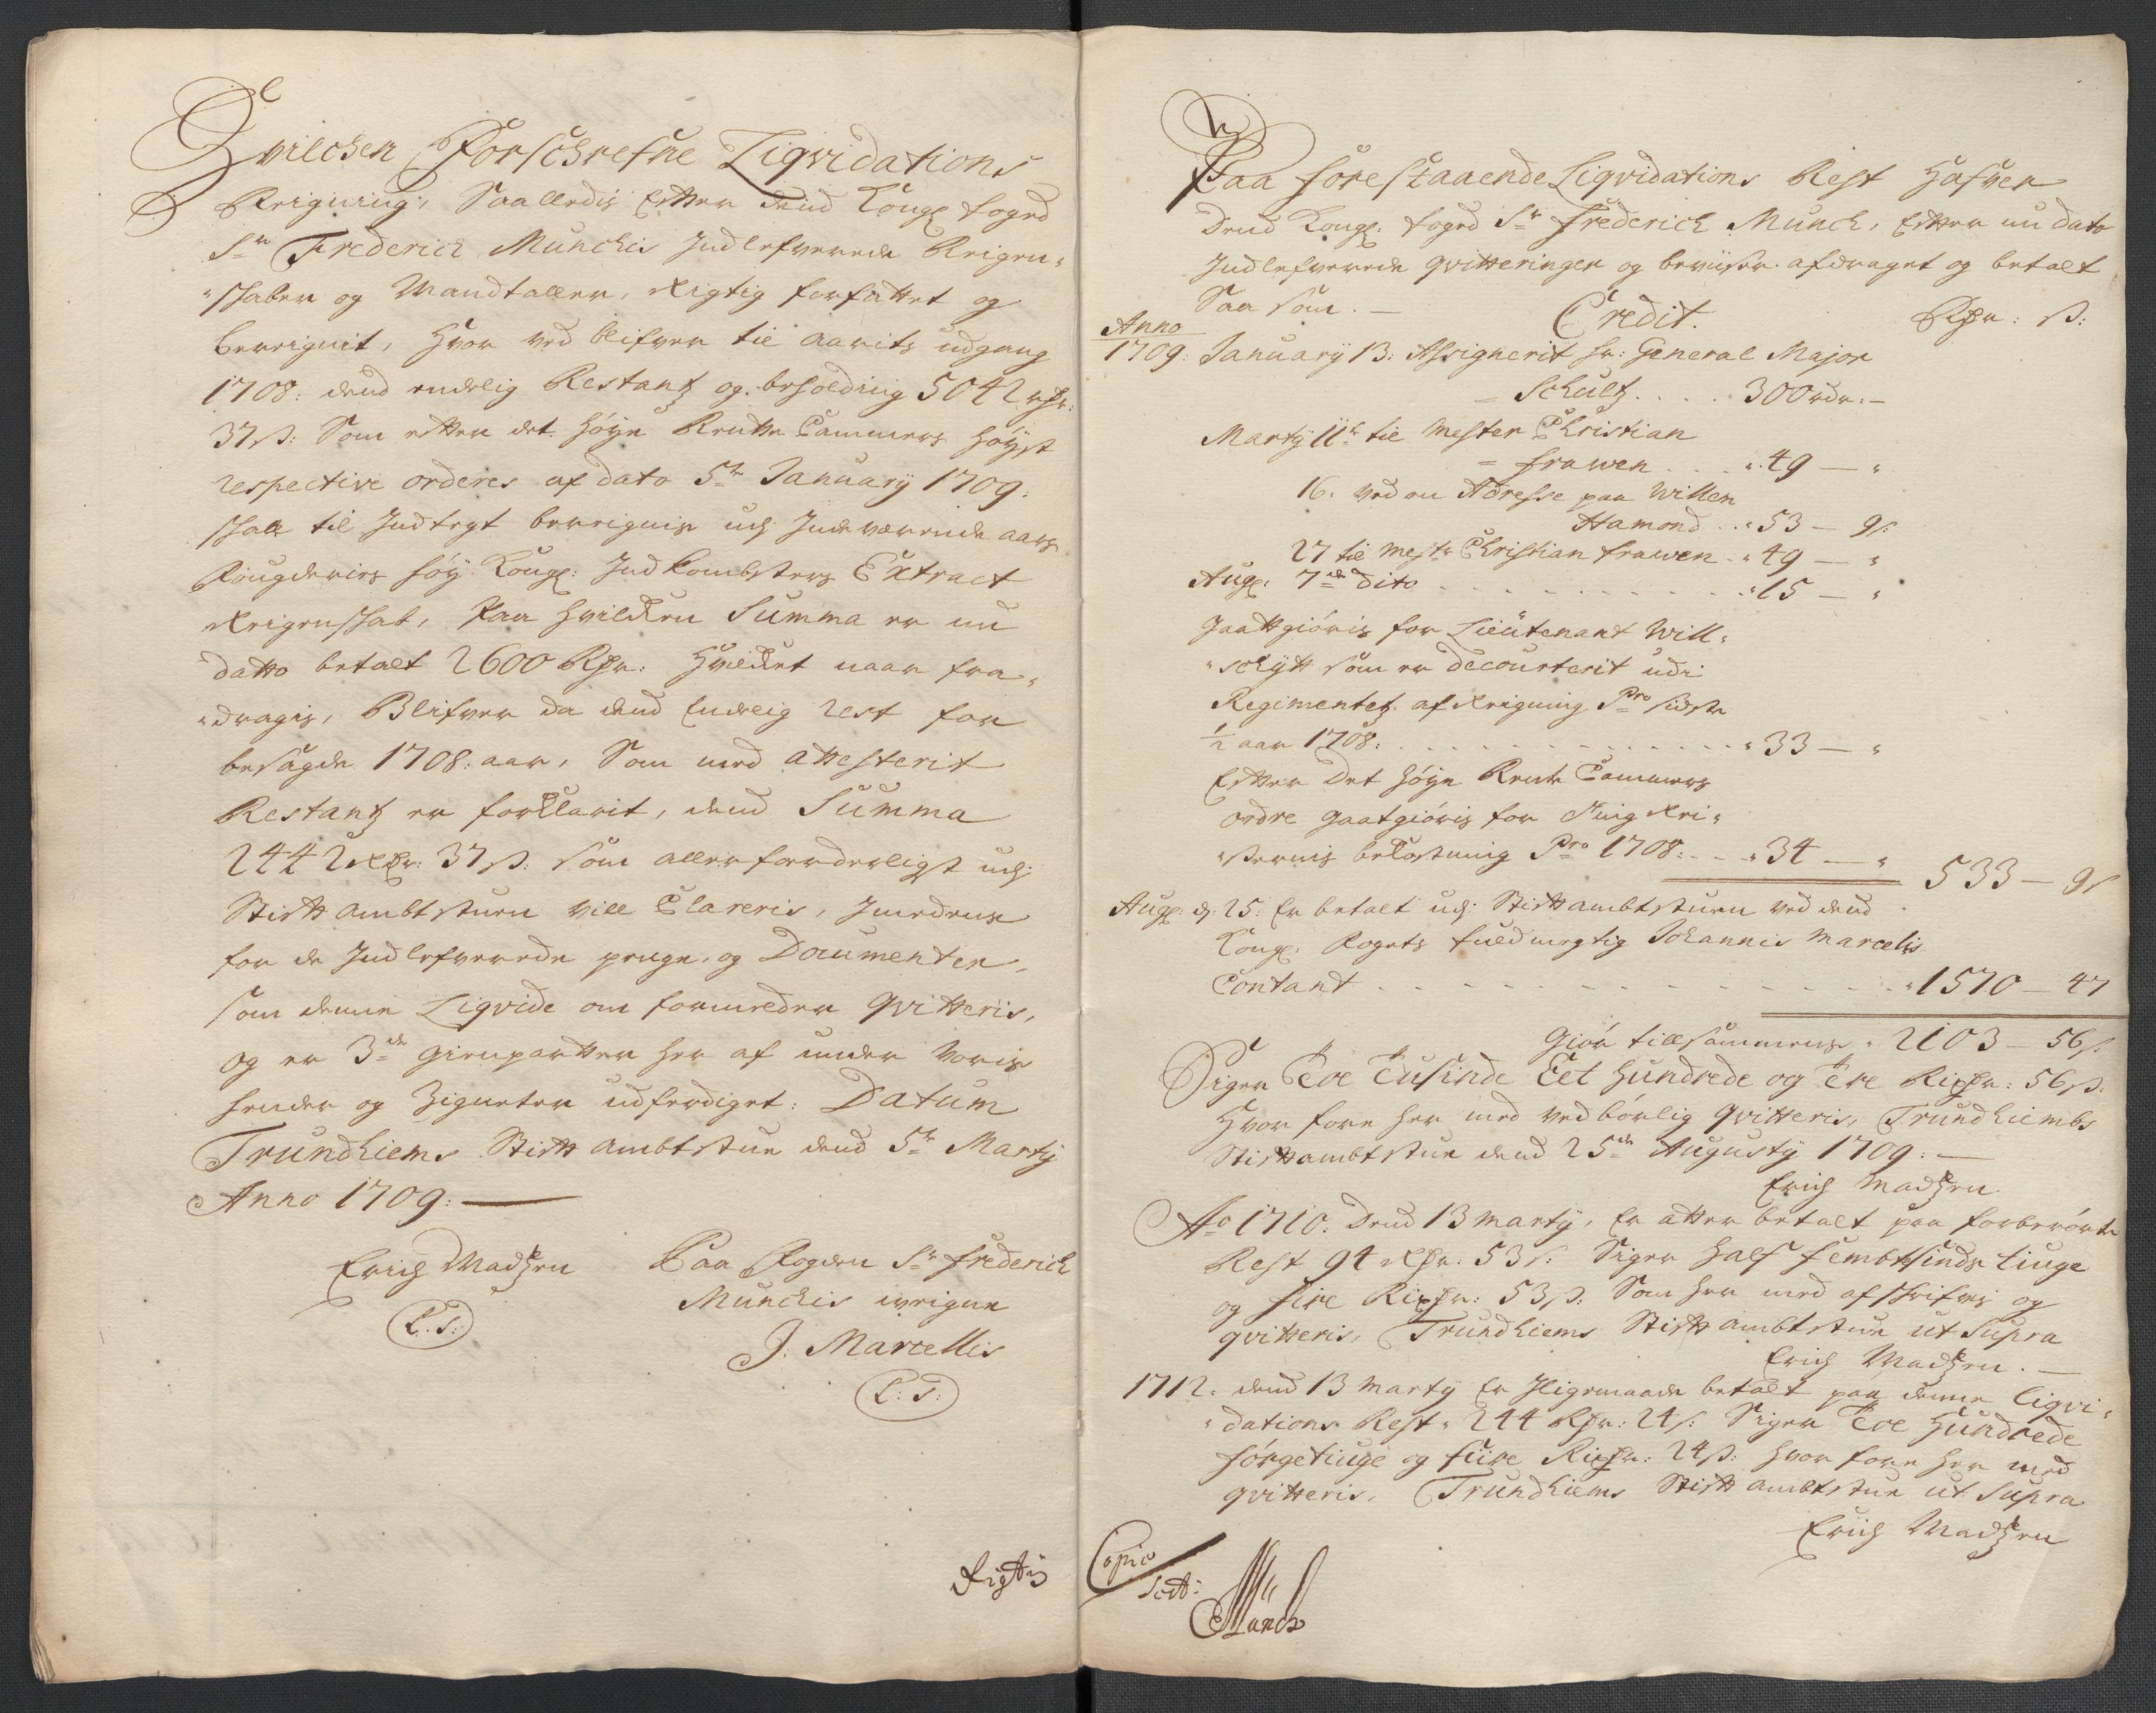 Hvilchen Forschrefne Liqvidations
Reigning, Saalledis Efter dend Kongl: foged
Sr Frederich Munchis Indlefverede Reigen-
-schaber og Mandtaller, Rigtig forfattet og
bereignit, Hvor ved blifver til aarits udgang
1708: dend endelig Restantz og beholding 5042 rdr:
37 s: Som efter det Høye Rente Cammers Høyst
respective orderes af dato 5te January 1709:
schall til Indtegt bereignis udj Indeværende aars
Fougderies høy Kongl: Indkombsters Extract
Reigenschab, Paa Hvilchen Summa er nu
datto betalt 2600 Rdr: Hvilchet naar fra-
-dragis, Blifver da dend Endelig rest for
besagde 1708: aar, Som med attesterit
Restantz er forklarit, dend Summa
2442 Rdr: 37 s: Som allerforderligst udj
Stiftambtstuen vill Clareris, Imedens
for de Indlefverede penge, og Documenter,
som denne Liqvide om formelder qvitteris,
og er 3de gienparter her af under voris
hender og Zigneter udferdiget: Datum
Trundhiems Stift ambtstue dend 5te Marty
Anno 1709:
Erich Madtzen
L. S:
Paa Fogden Sr Frederich
Munchis veigne
J. Marcellis
L: S:
Rigtig
Paa forestaaende Liqvidations Rest Hafver
Dend Kongl: foged Sr Frederich Munch, Efter nu dato
Indlefverede qvitteringer og beviiser afdraget og betalt
Saa som.
Credit. Rdr: s:
Anno
1709: January 13: Assignerit hr: General Major
Schultz . . . . 300 rdr: —
Marty 11te til Mester Christian
frawen . . . 49 —
16: ved en Adresse paa Willem
Hamond . . 53 — 9 s:
27 til Mestr Christian frawen . 49 —
Augt: 7de dito . . . . . 15 —
Gaattgiøris for Lieutenant Will-
-schytt som er decourterit udi
Regimentetz afreigning Pro sidste
½ aar 1708: . . . . . 33 —
Efter Det høye Rente Cammers
ordre gaatgiøris for Ting Rei-
-sernis bekostning Pro 1708: . . 34 — 533 — 9 s
Augt: d: 25: Er betalt udj Stiftambtstuen ved dend
Kongl: Fogets fuldmegtig Johannes Marcelis
Contant . . . . . 1570 — 47
Giør tillsammens 2103 — 56 s:
Siger Toe Tusinde Eet Hundrede og Tre Rixdr: 56 s:
Hvor fore her med vedbørlig qvitteris, Trundhiembs
Stiftambtstue dend 25de Augusty 1709:
Erich Madtzen
Ao 1710. Dend 13 Marty, Er atter betalt paa forberørte
Rest 94 Rdr: 53 s: Siger Half fembtesinds tiuge
og fire Rixdr: 53 s: Som her med afschrifves og
qvitteris, Trundhiems Stift ambtstue ut Supra
Erich Madtzen.
1712: dend 13 Marty Er Iligemaade betalt paa denne Liqvi-
-dations Rest 244 Rdr: 24 s: Siger Toe Hundrede
førgetiuge og fiire Rixdr: 24 s: hvor fore her med
qvitteris, Trundhiems Stift ambtstue ut Supra
Erich Madtzen
Copie
Munch